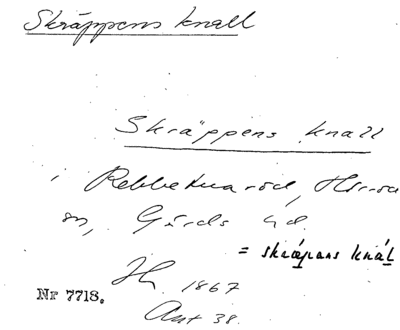 Skräppens knall
Skräppens knall
i Rebbetuaröd,
sn, Gärds hd.
= skräpans knál
1867
Nr 7718.
Ant 38.